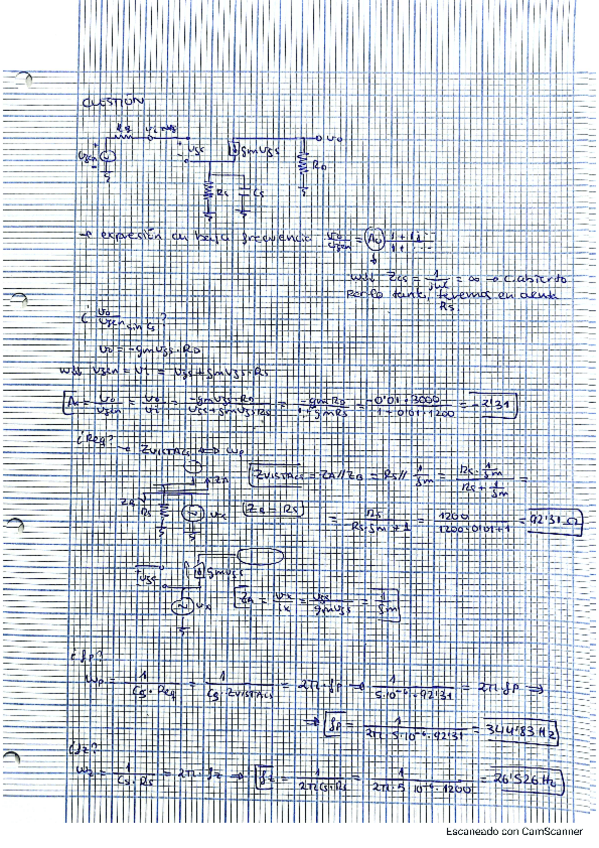 CUESTIÓN
Rg vi
vgen vgs gmvgs vo RD
RS CS
→ expresión en baja frecuencia vo/vgen = Ao (1+
w↓↓ Zcs = 1/jwC = ∞ → c. abierto
por lo tanto, tenemos en cuenta
Rs.
¿ vo/vgen sin Cs?
vo = -gmvgs·RD
w↓↓ vgen = vi = vgs + gmvgs·Rs
A = vo/vgen = vo/vi = -gmvgs·RD / vgs + gmvgs·Rs = -gmRD / 1+gmRs = -0'01·3000 / 1+0'01·1200 = -2'31
¿Req? → ZVISTACs ⇔ wp
ZVISTACs = ZA//ZB = Rs// 1/gm = Rs·1/gm / Rs+1/gm =
ZB Rs vx ZB = Rs
= Rs / Rs·gm+1 = 1200 / 1200·0'01+1 = 92'31 Ω
vgs gmvgs
vx ZA = vx/ix = vgs/gmvgs = 1/gm
¿fp?
wp = 1/Cs·Req = 1/Cs·ZVISTACs = 2π·fp → 1/5·10⁻⁶·92'31 = 2π·fp ⇒
⇒ fp = 1/2π·5·10⁻⁶·92'31 = 344'83 Hz
¿fz?
wz = 1/Cs·Rs = 2π·fz ⇒ fz = 1/2πCs·Rs = 1/2π·5·10⁻⁶·1200 = 26'526 Hz
Escaneado con CamScanner